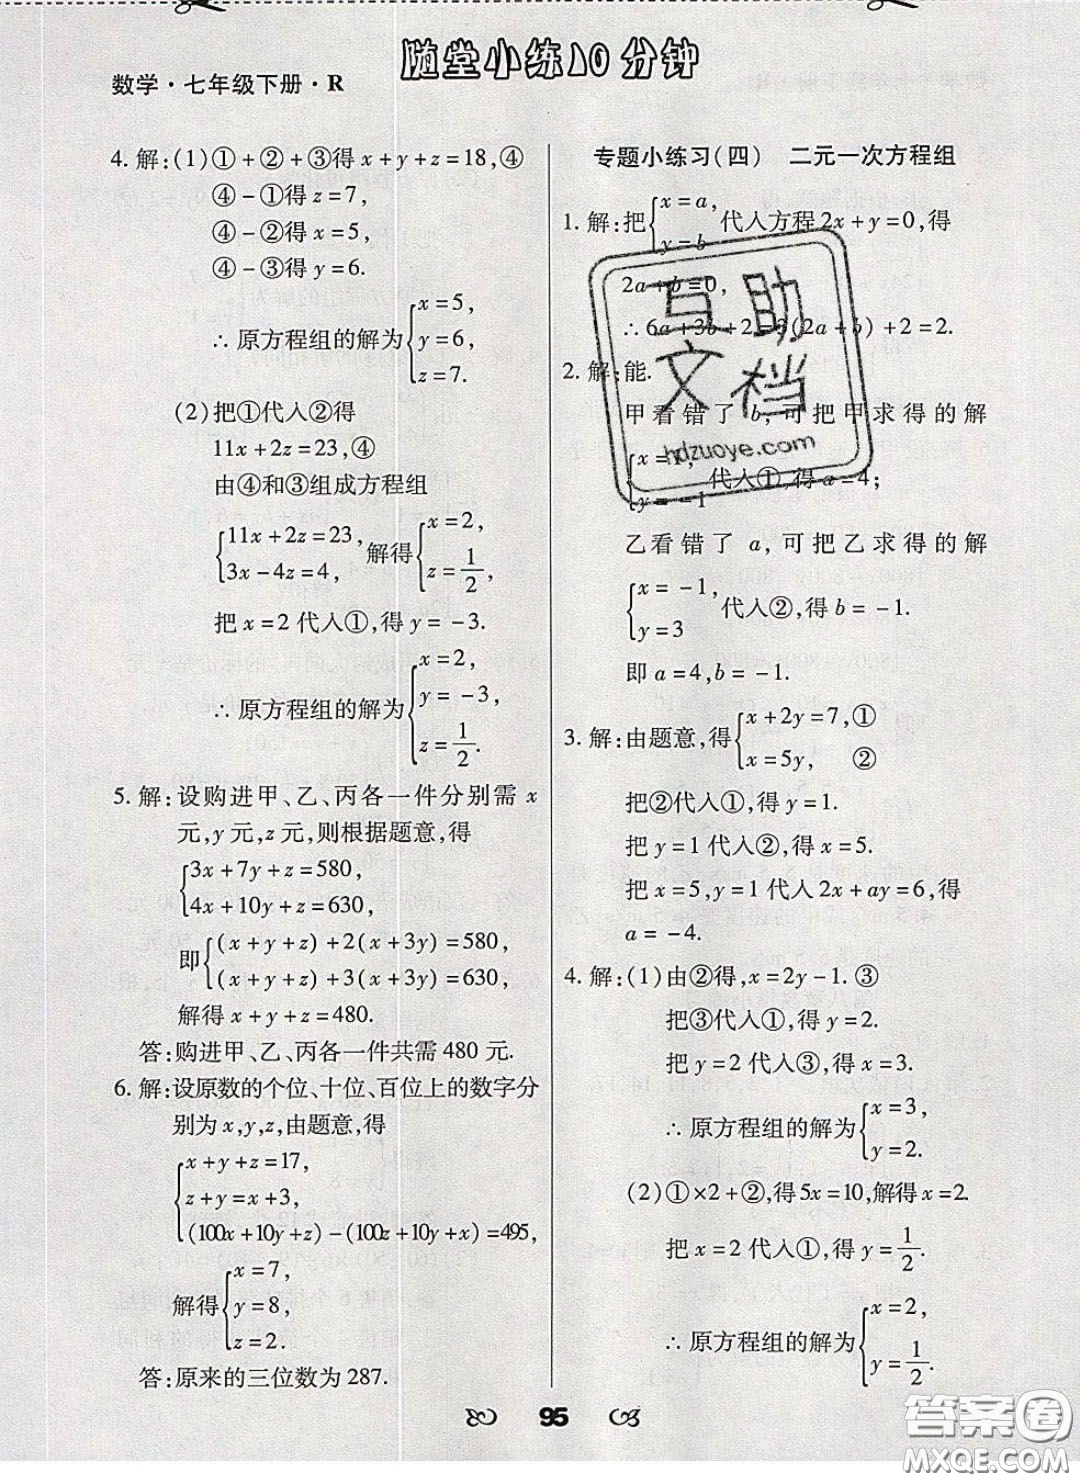 随堂小练10分钟
数学·七年级下册·R
4. 解:(1)①+②+③得x+y+z=18,④
④-①得z=7,
④-②得x=5,
④-③得y=6.
∴原方程组的解为{x=5,
y=6,
z=7.
(2)把①代入②得
11x+2z=23,④
由④和③组成方程组
{11x+2z=23,
3x-4z=4, 解得{x=2,
z=1/2,
把x=2代入①,得y=-3.
∴原方程组的解为{x=2,
y=-3,
z=1/2.
5. 解:设购进甲、乙、丙各一件分别需x
元,y元,z元,则根据题意,得
{3x+7y+z=580,
4x+10y+z=630,
即{(x+y+z)+2(x+3y)=580,
(x+y+z)+3(x+3y)=630,
解得x+y+z=480.
答:购进甲、乙、丙各一件共需480元.
6. 解:设原数的个位、十位、百位上的数字分
别为x,y,z,由题意,得
{x+y+z=17,
z+y=x+3,
(100x+10y+z)-(100z+10y+x)=495,
解得{x=7,
y=8,
z=2.
答:原来的三位数为287.
专题小练习(四) 二元一次方程组
1. 解:把{x=a,
y=b 代入方程2x+y=0,得
2a+b=0,
∴6a+3b+2=3(2a+b)+2=2.
2. 解:能.
甲看错了b,可把甲求得的解
{x=1,
y=-1 代入①,得a=4;
乙看错了a,可把乙求得的解
{x=-1,
y=3 代入②,得b=-1.
即a=4,b=-1.
3. 解:由题意,得{x+2y=7,①
x=5y, ②
把②代入①,得y=1.
把y=1代入②,得x=5.
把x=5,y=1代入2x+ay=6,得
a=-4.
4. 解:(1)由②得,x=2y-1.③
把③代入①,得y=2.
把y=2代入③,得x=3.
∴原方程组的解为{x=3,
y=2.
(2)①×2+②,得5x=10,解得x=2.
把x=2代入①,得y=1/2.
∴原方程组的解为{x=2,
y=1/2.
互助
文档
hdzuoye.com
95
答案圈
MXQE.COM